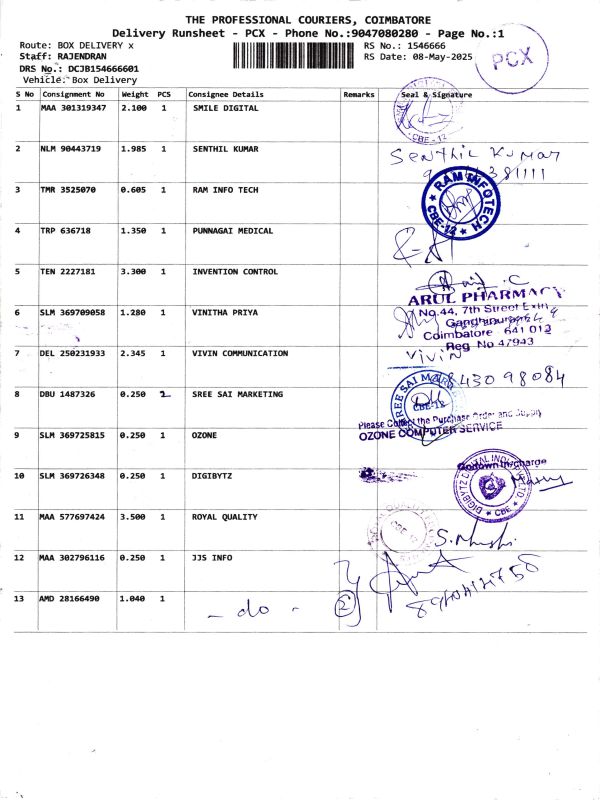 THE PROFESSIONAL COURIERS, COIMBATORE
Delivery Runsheet - PCX - Phone No.:9047080280 - Page No.:1
Route: BOX DELIVERY x
RS No.: 1546666
Staff: RAJENDRAN
RS Date: 08-May-2025
DRS No.: DCJB154666601
Vehicle: Box Delivery
PCX
S No Consignment No Weight PCS Consignee Details Remarks Seal & Signature
1 MAA 301319347 2.100 1 SMILE DIGITAL
CBE-12
2 NLM 90443719 1.985 1 SENTHIL KUMAR Senthil Kumar
3 TMR 3525070 0.605 1 RAM INFO TECH RAM INFOTECH CBE-12
4 TRP 636718 1.350 1 PUNNAGAI MEDICAL
5 TEN 2227181 3.300 1 INVENTION CONTROL
ARUL PHARMACY
No.44, 7th Street Extn
6 SLM 369709058 1.280 1 VINITHA PRIYA
Coimbatore 641 012
Reg No 47943
7 DEL 250231933 2.345 1 VIVIN COMMUNICATION Vivin
843098084
8 DBU 1487326 0.250 1 SREE SAI MARKETING SREE SAI MARK CBE-12
Please Collect the Purchase Order and Supply
9 SLM 369725815 0.250 1 OZONE OZONE COMPUTER SERVICE
Godown Incharge
10 SLM 369726348 0.250 1 DIGIBYTZ DIGIBYTZ CBE
11 MAA 577697424 3.500 1 ROYAL QUALITY
CBE-12
12 MAA 302796116 0.250 1 JJS INFO
13 AMD 28166490 1.040 1 - do - 2